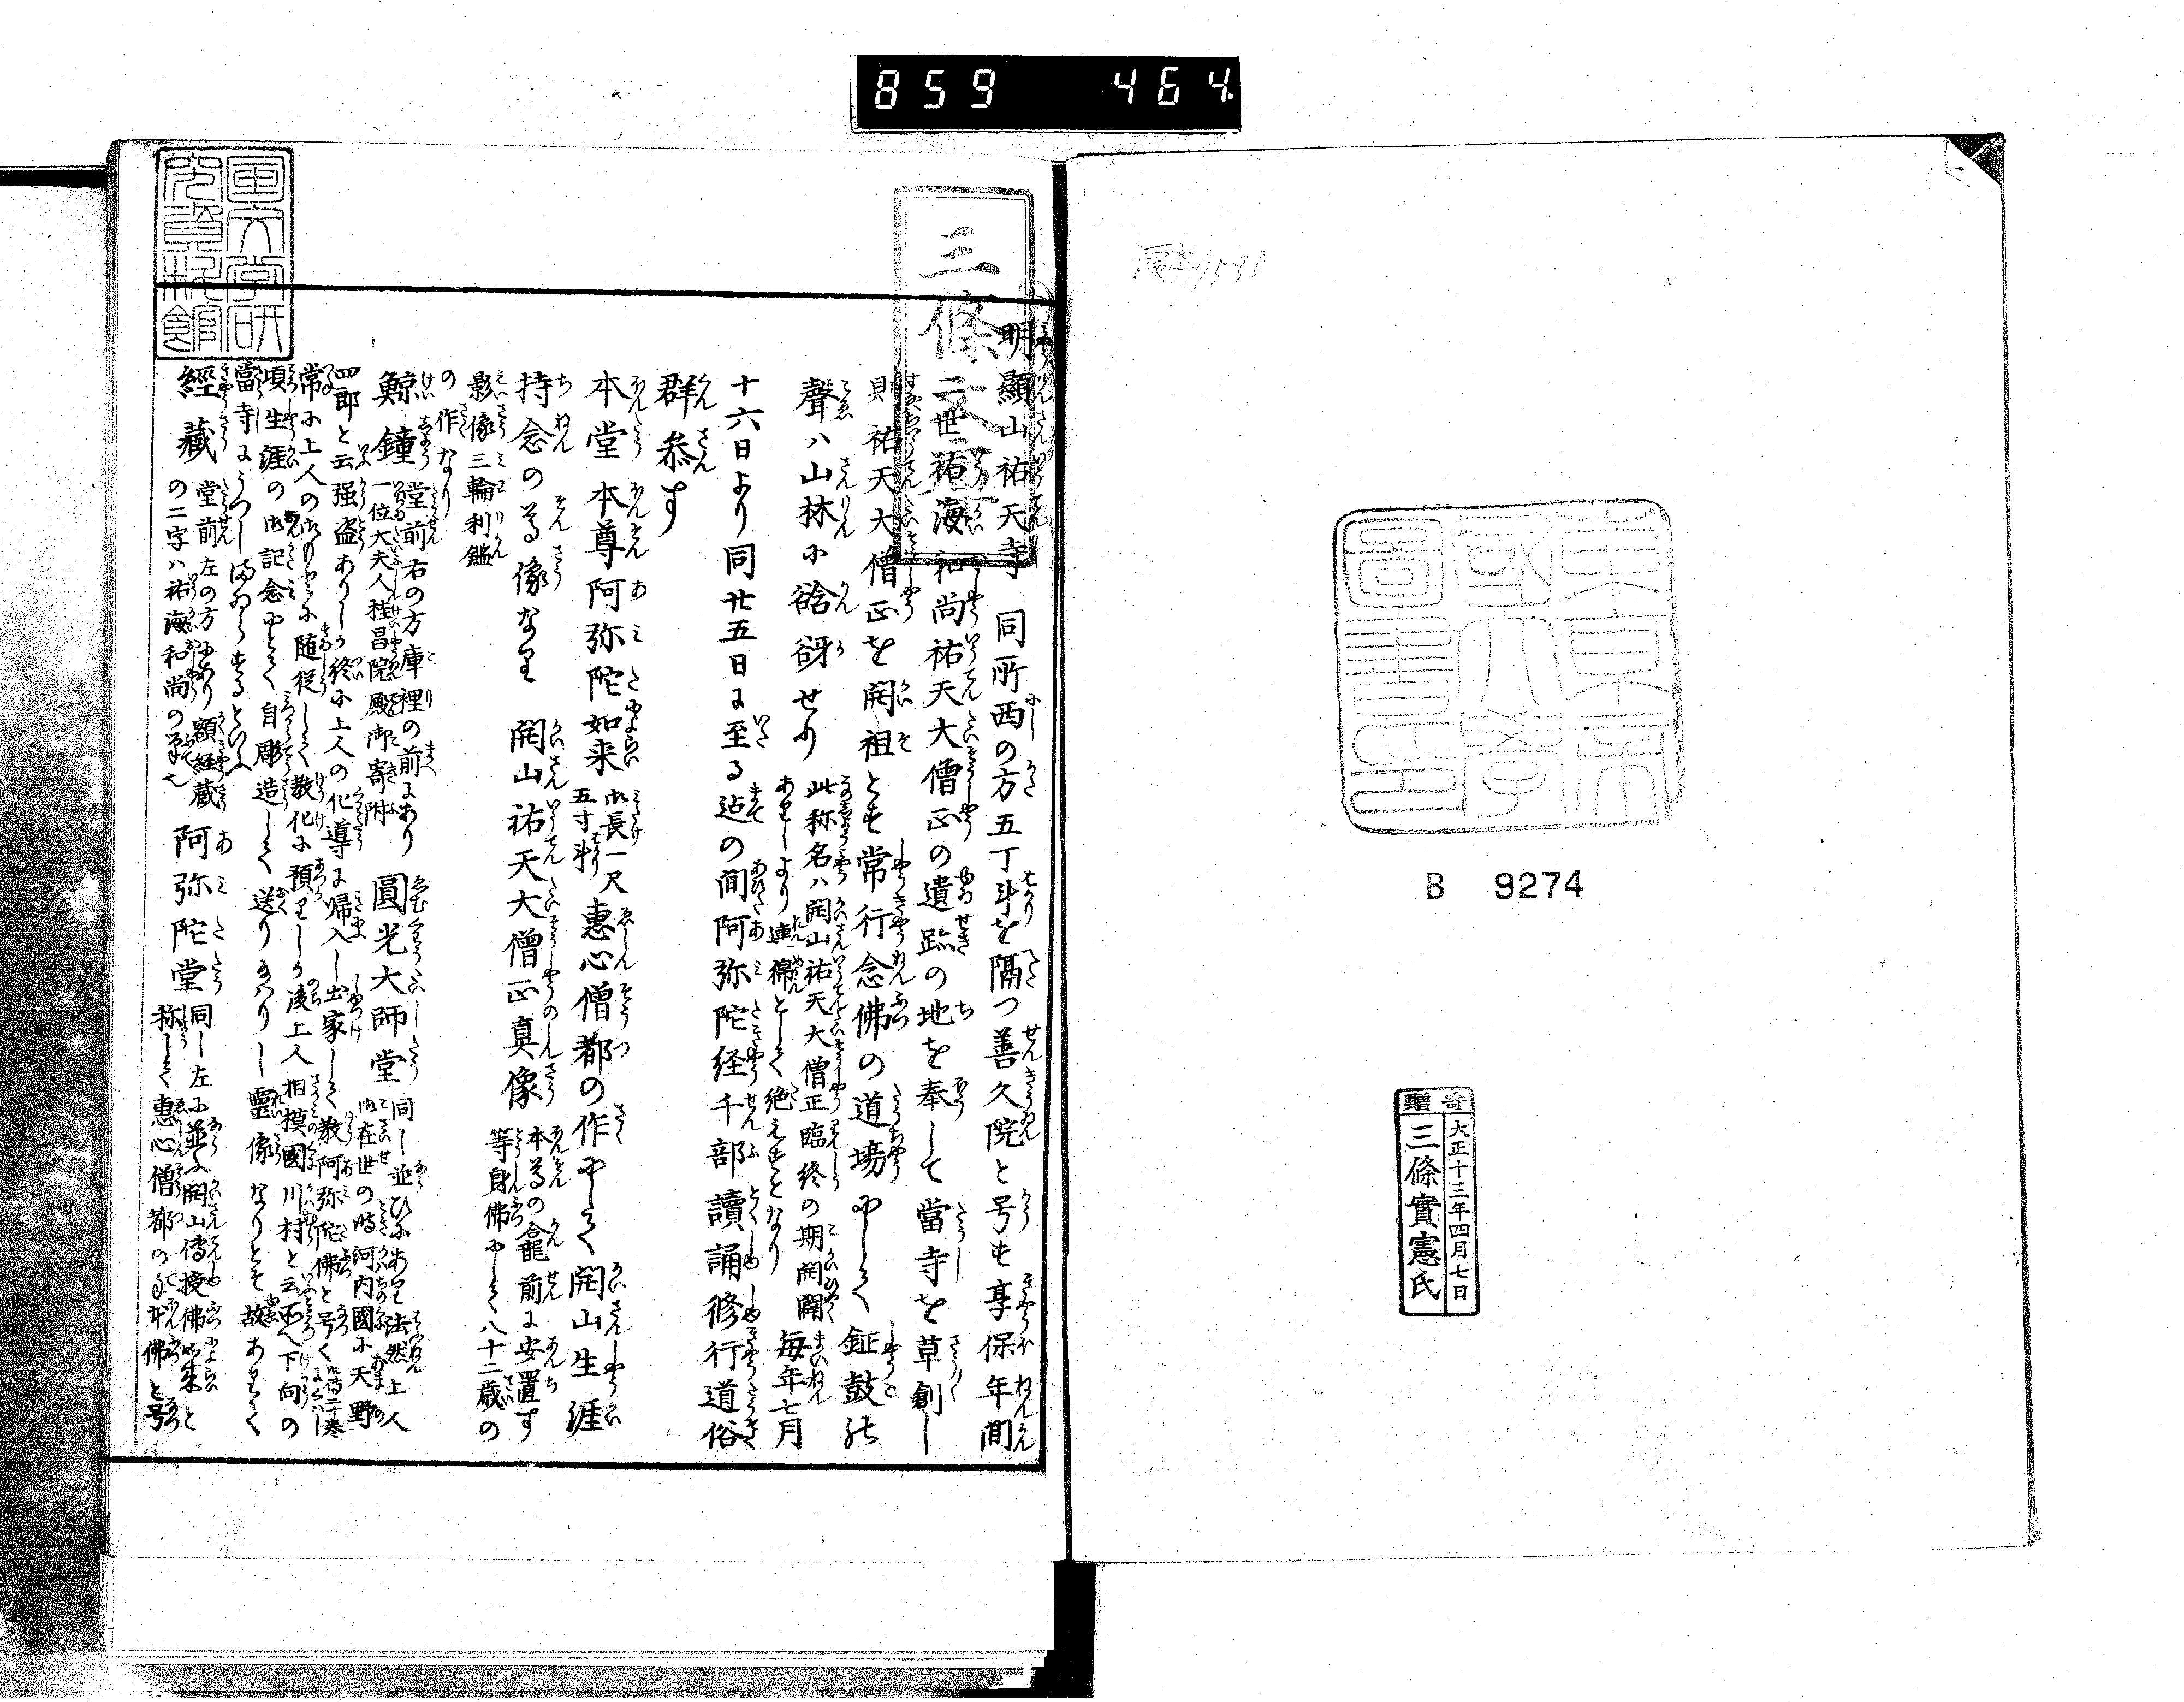 859 464.
東京帝
國大學
圖書室
B 9274
寄贈
大正十三年四月七日
三條實憲氏
三條文庫
明顯山祐天寺 同所西の方五丁斗を隔つ善久院と号す享保年間
世祐海和尚祐天大僧正の遺跡の地を奉して當寺を草創し
則祐天大僧正を開祖とす常行念佛の道場にして鉦鼓の
聲ハ山林に谽谺せり 此称名ハ開山祐天大僧正臨終の期開闢
ありしより連綿として絶えすとなり 毎年七月
十六日より同廿五日に至る迠の間阿弥陀経千部讀誦修行道俗
群参す
本堂 本尊阿弥陀如来 御長一尺
五寸斗 惠心僧都の作にして開山生涯
持念の尊像なり 開山祐天大僧正真像 本尊の龕前に安置す
等身佛にして八十二歳の
影像三輪利鑑
の作なり
鯨鐘 堂前右の方庫裡の前にあり
一位大夫人桂昌院殿御寄附 圓光大師堂 同し並ひにあり法然上人
御在世の時河内國に天野
四郎と云强盗ありしか終に上人の化導に歸入し出家して教阿弥陀佛と号く
常に上人の に随従して教化に預りしか後上人相摸國川村と云所へ下向の
頃生涯の御記念にとて自彫造して送り まつりし靈像なりとそ故ありて
當寺にうつしまゐらするといふ
經藏 堂前左の方にあり額経蔵
の二字ハ祐海和尚の筆也 阿弥陀堂 同し左に並ふ開山傳授佛如来と
称して惠心僧都の 佛と号